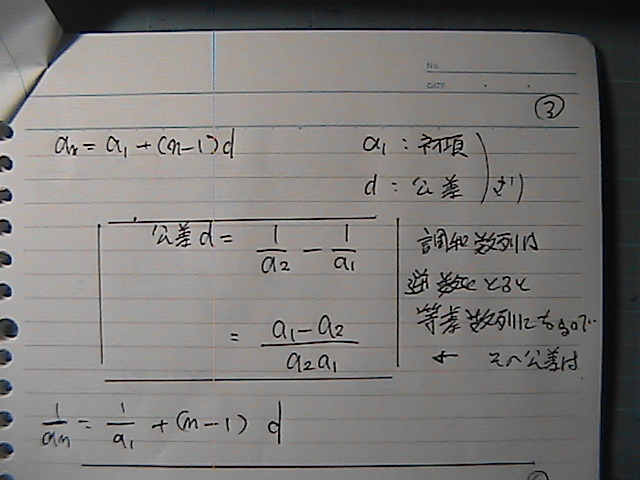 No.
DATE
③
aₙ = a₁ + (n-1)d
a₁ : 初項
d : 公差 より
公差d = 1/a₂ - 1/a₁
= (a₁-a₂)/(a₂a₁)
調和数列は
逆数をとると
等差数列になるので
← その公差は
1/aₙ = 1/a₁ + (n-1) d